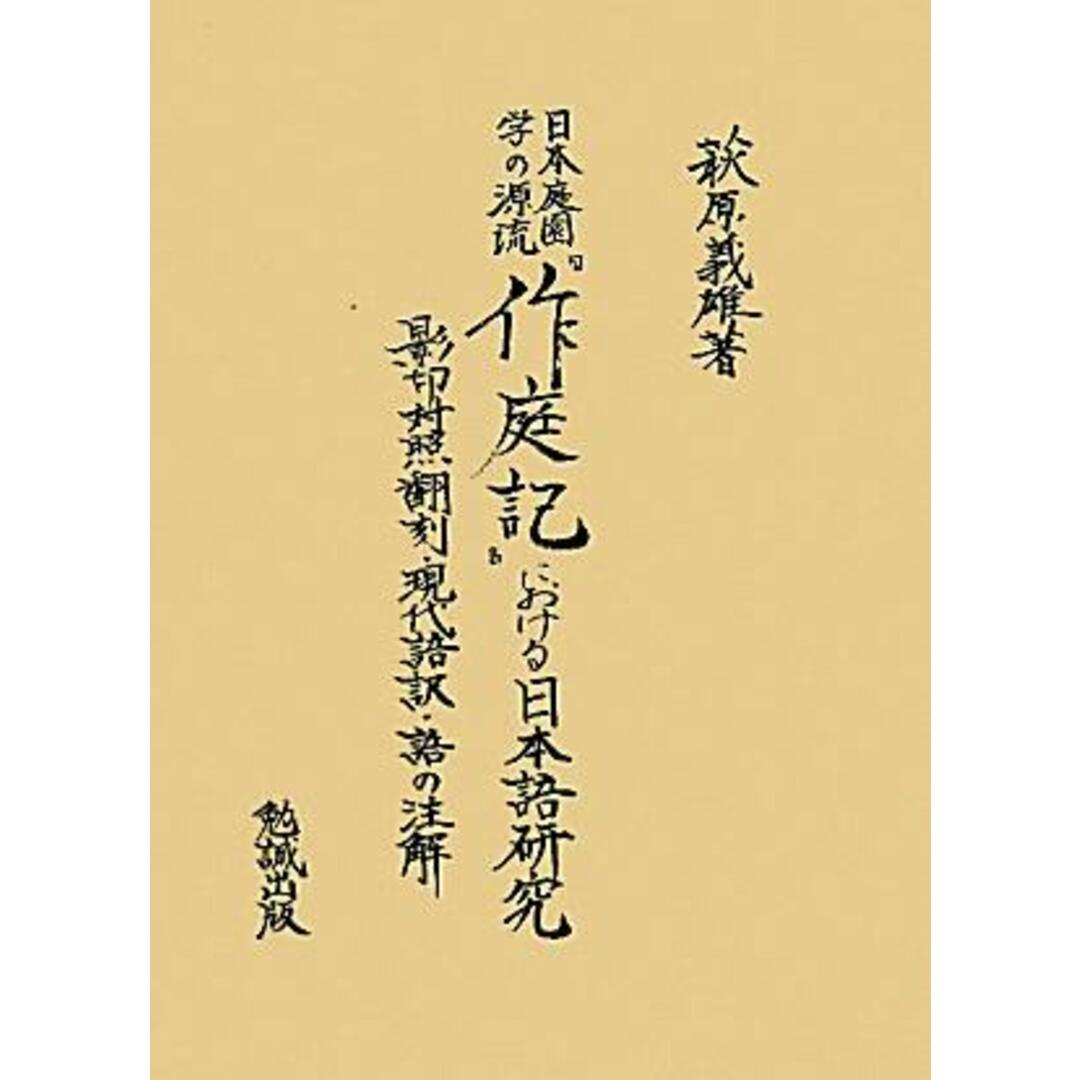 萩原義雄著
日本庭園
学の源流
『作庭記』における日本語研究
影印対照翻刻・現代語訳・語の注解
勉誠出版